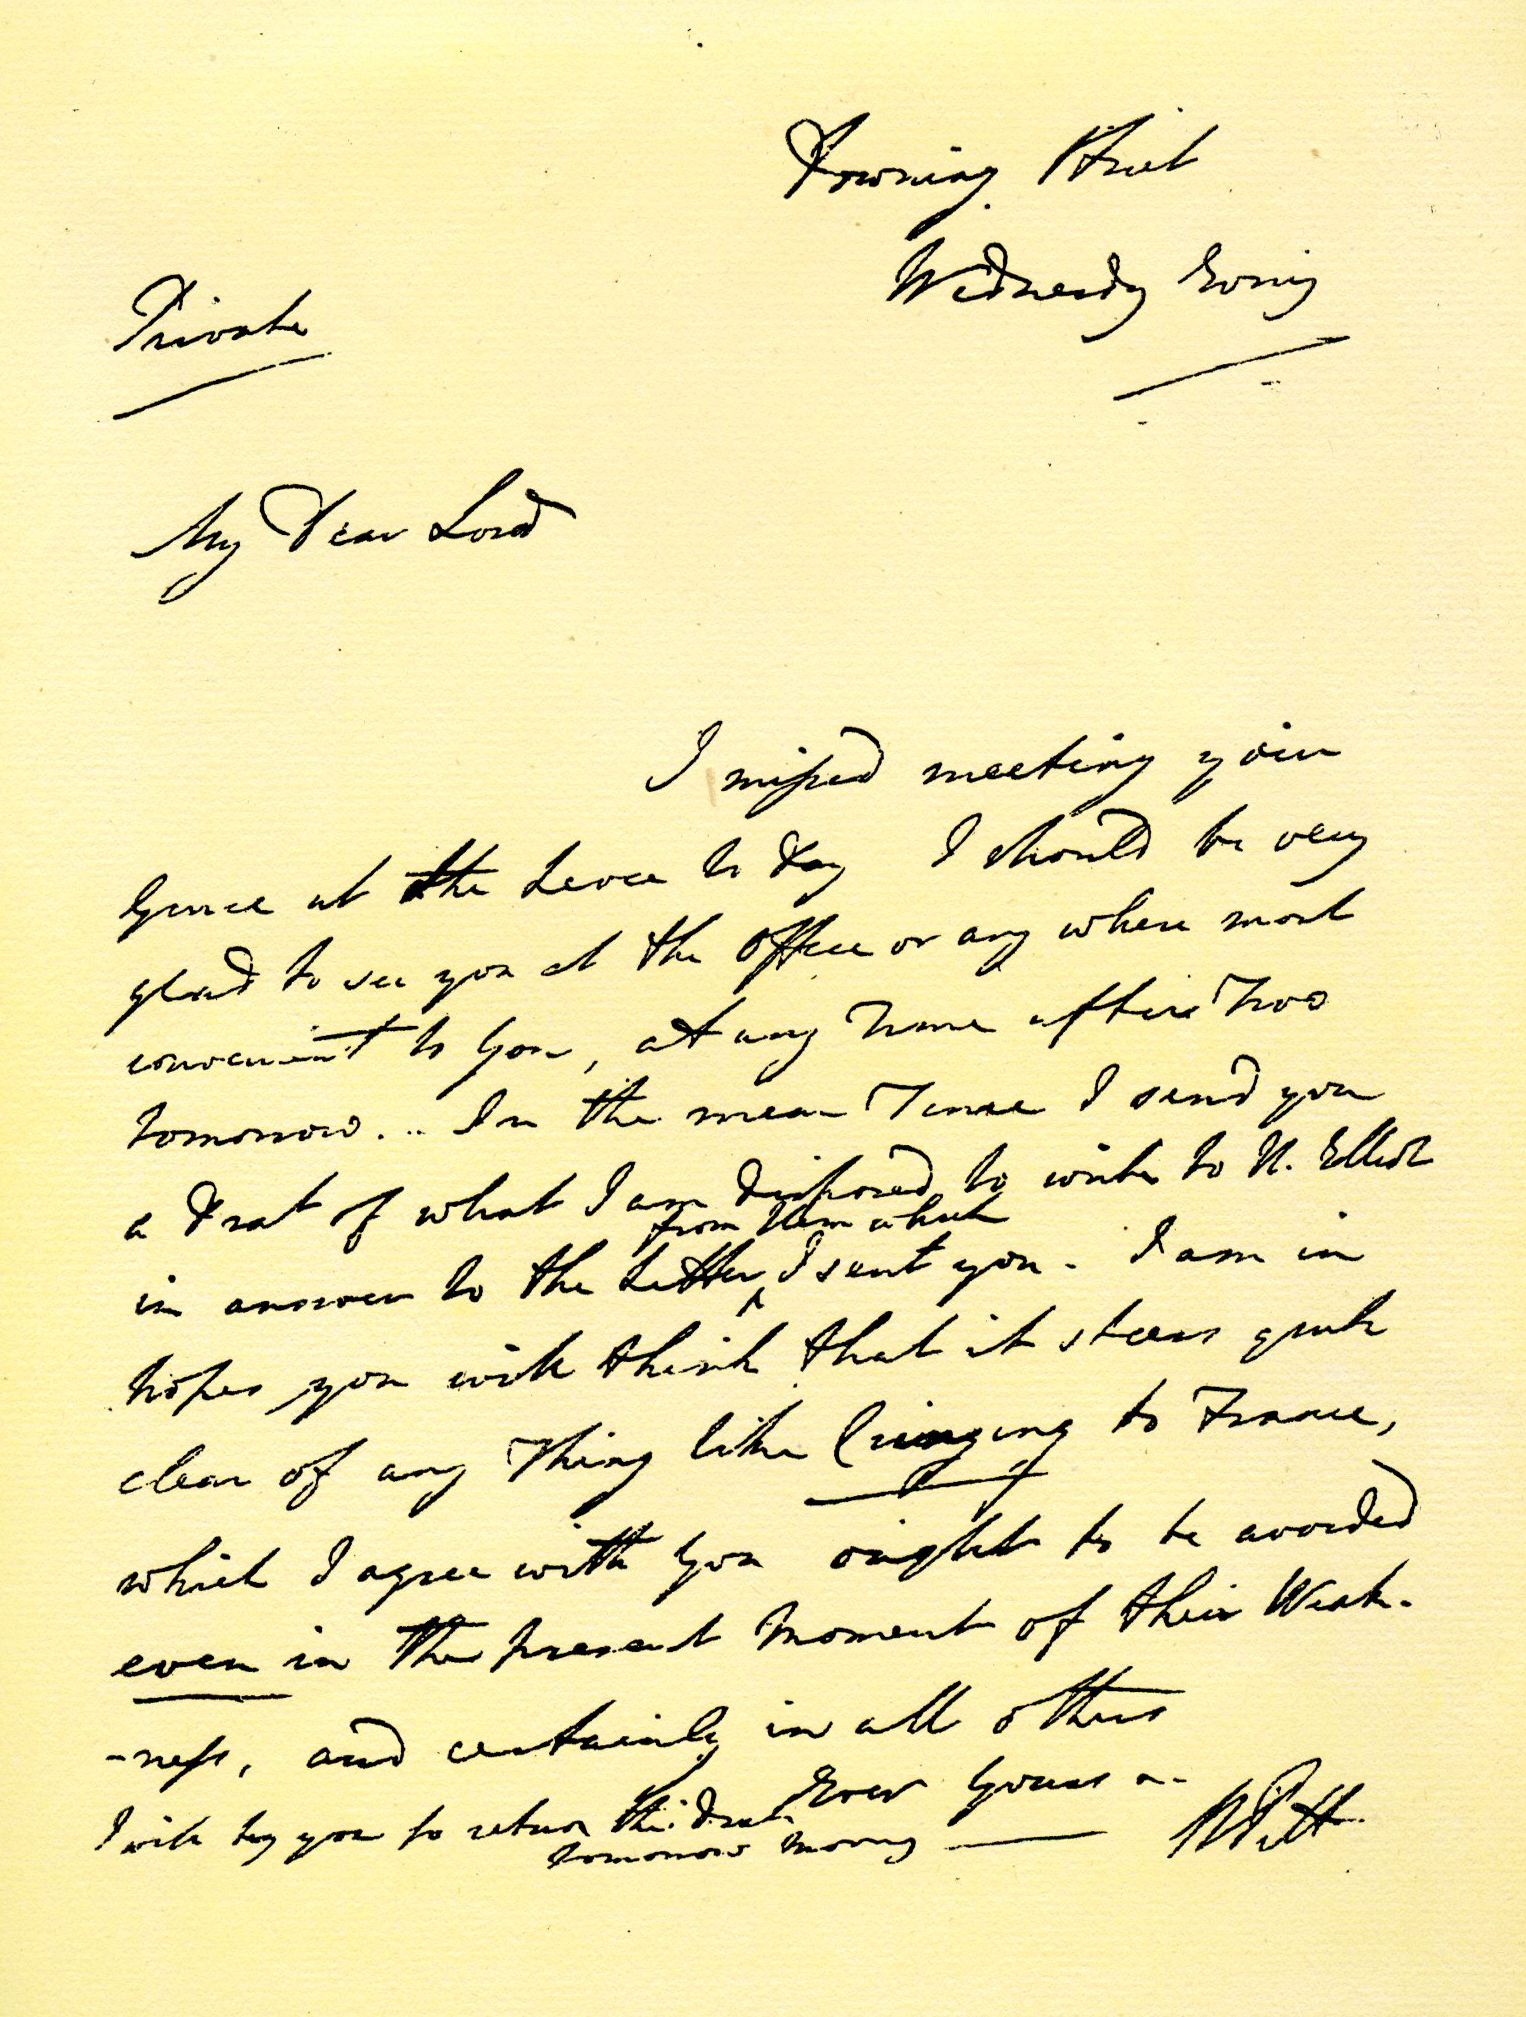 Downing Street
Wednesdy Evening
Private
My Dear Lord
I missed meeting your
Grace at the Levee to Day I should be very
glad to see you at the Office or any where most
convenient to You, at any Time after Two
tomorrow... In the mean Time I send you
a Draft of what I am disposed to write to H. Elliot
from Him which
in answer to the Letter I sent you. I am in
hopes you will think that it steers quite
clear of any Thing like cringing to France,
which I agree with You ought to be avoided
even in the present Moment of their Weak-
-ness, and certainly in all others
Ever Yours
I will beg you to return this Draft
tomorrow morng
W Pitt.